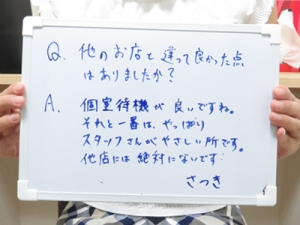 Q. 他のお店と違って良かった点
はありましたか？
A. 個室待機が良いですね。
それと一番は、やっぱり
スタッフさんがやさしい所です。
他店には絶対にないです。
さつき